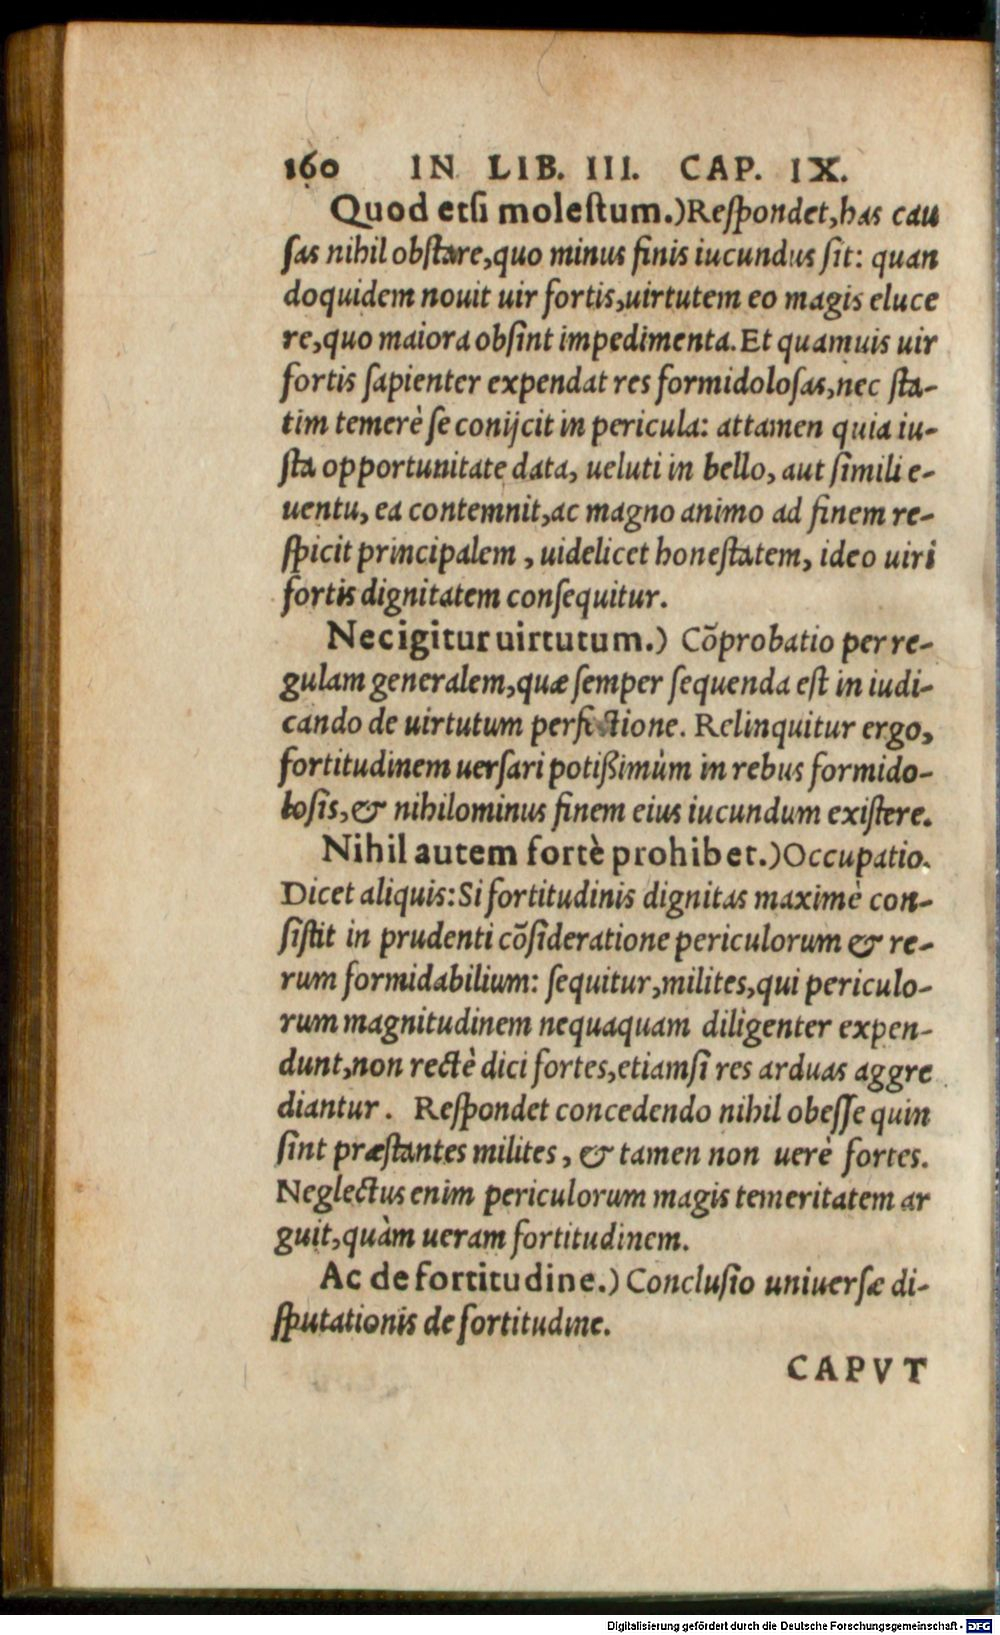 160 IN LIB. III. CAP. IX.
Quod etsi molestum.) Respondet, has cau
sas nihil obstare, quo minus finis iucundus sit: quan
doquidem nouit uir fortis, uirtutem eo magis eluce
re, quo maiora obsint impedimenta. Et quamuis uir
fortis sapienter expendat res formidolosas, nec sta-
tim temerè se conijcit in pericula: attamen quia iu-
sta opportunitate data, ueluti in bello, aut simili e-
uentu, ea contemnit, ac magno animo ad finem re-
spicit principalem, uidelicet honestatem, ideo uiri
fortis dignitatem consequitur.
Nec igitur uirtutum.) Cõprobatio per re-
gulam generalem, quæ semper sequenda est in iudi-
cando de uirtutum perfectione. Relinquitur ergo,
fortitudinem uersari potißimùm in rebus formido-
losis, & nihilominus finem eius iucundum existere.
Nihil autem fortè prohibet.) Occupatio.
Dicet aliquis: Si fortitudinis dignitas maximè con-
sistit in prudenti cõsideratione periculorum & re-
rum formidabilium: sequitur, milites, qui periculo-
rum magnitudinem nequaquam diligenter expen-
dunt, non rectè dici fortes, etiamsi res arduas aggre
diantur. Respondet concedendo nihil obesse quin
sint præstantes milites, & tamen non uerè fortes.
Neglectus enim periculorum magis temeritatem ar
guit, quàm ueram fortitudinem.
Ac de fortitudine.) Conclusio uniuersæ di-
sputationis de fortitudine.
CAPVT
Digitalisierung gefördert durch die Deutsche Forschungsgemeinschaft - DFG